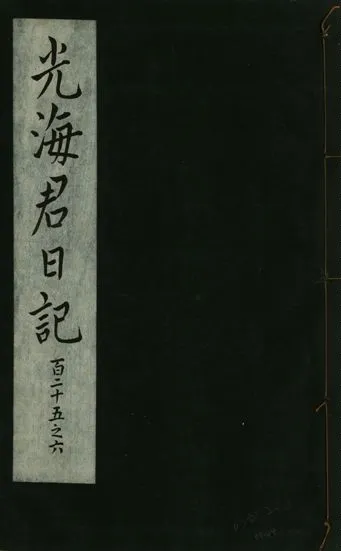 光海君日記
百二十五之六